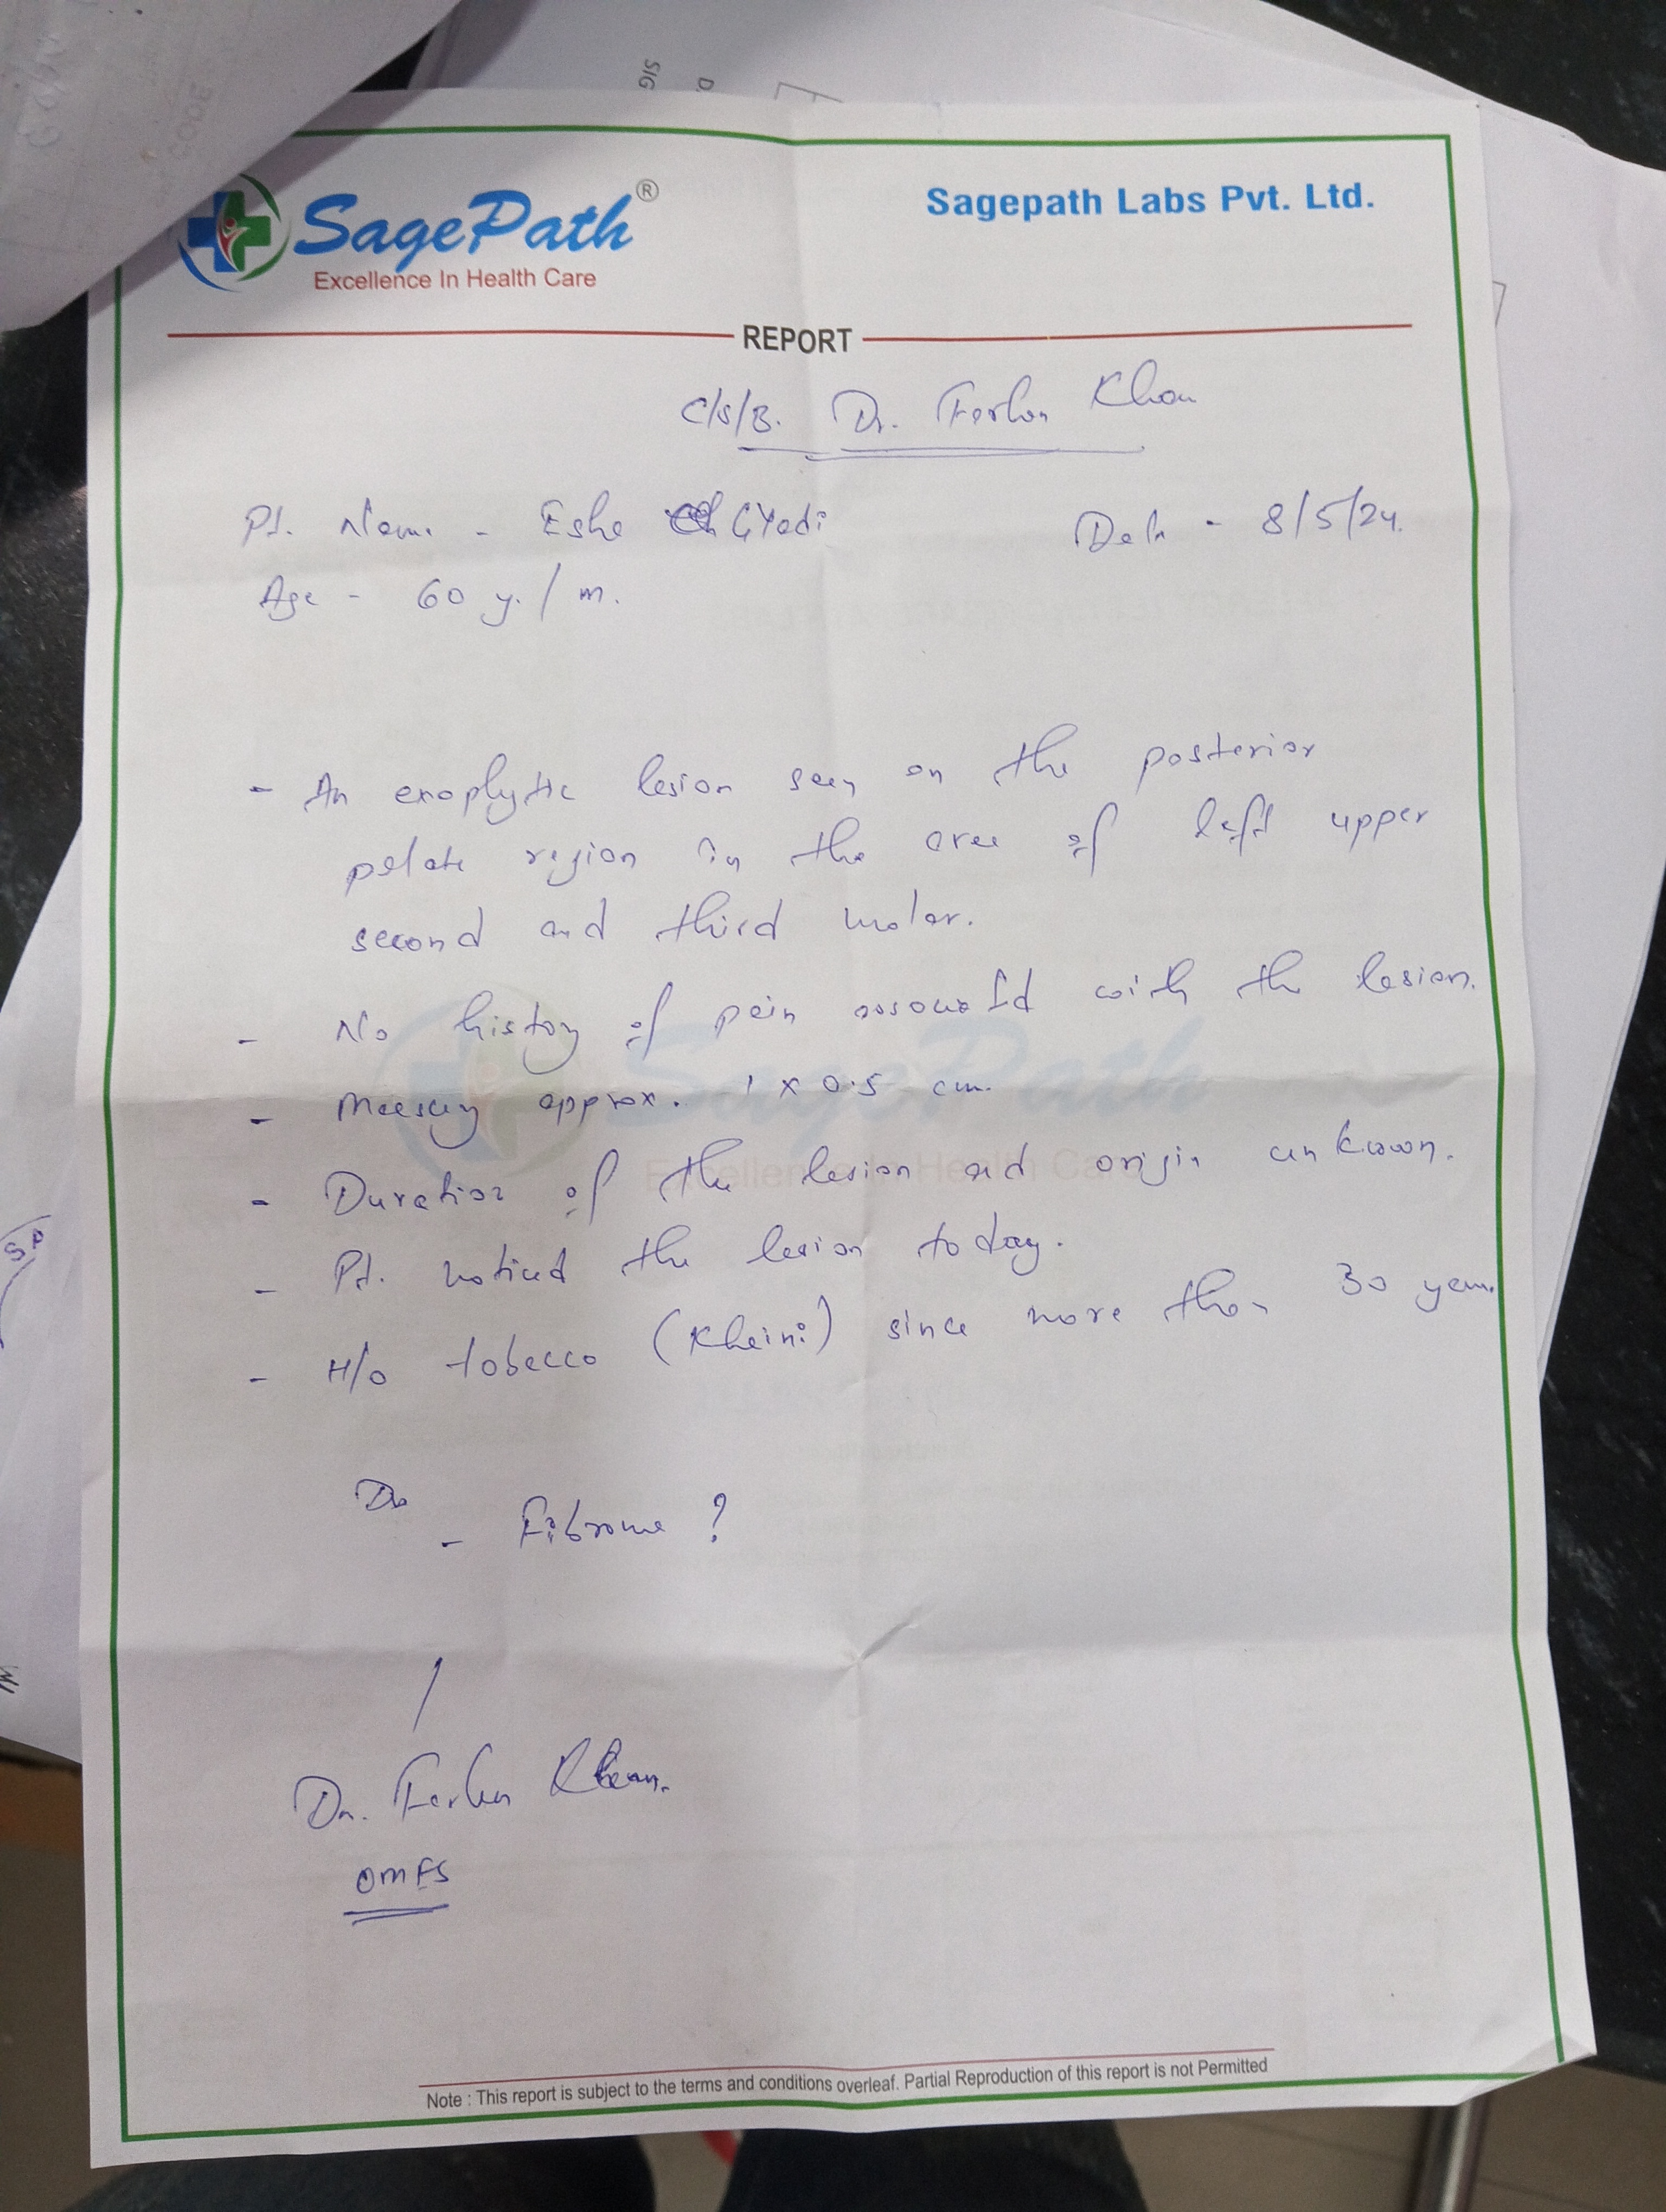 SIG
D.
CODE
SagePath®
Excellence In Health Care
Sagepath Labs Pvt. Ltd.
REPORT
C/S/B. Dr. Farhan Khan
Pt. Name - Date - 8/5/24.
Age - 60 y. / m.
- An exophytic lesion seen on the posterior
palate region in the area of left upper
second and third molar.
- No history of pain associated with the lesion.
- Measuring approx. 1 x 0.5 cm.
- Duration of the lesion and origin unknown.
- Pt. noticed the lesion today.
- H/o tobacco (Khaini) since more than 30 years.
- Fibroma ?
Dr. Farhan Khan.
OMFS
Note : This report is subject to the terms and conditions overleaf. Partial Reproduction of this report is not Permitted